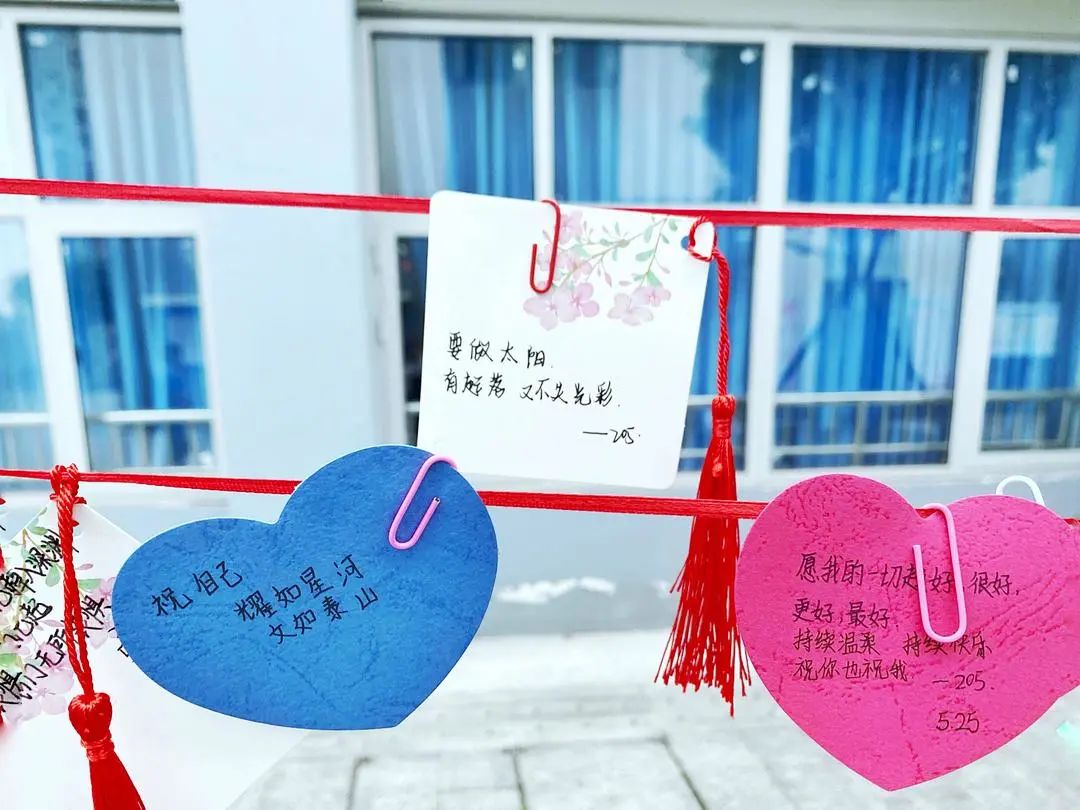 要做太阳.
有起落 又不失光彩.
—205.
祝自己
耀如星河
文如泰山
愿我的一切 好 很好,
更好,最好
持续温柔 持续快乐
祝你也祝我
—205.
5.25